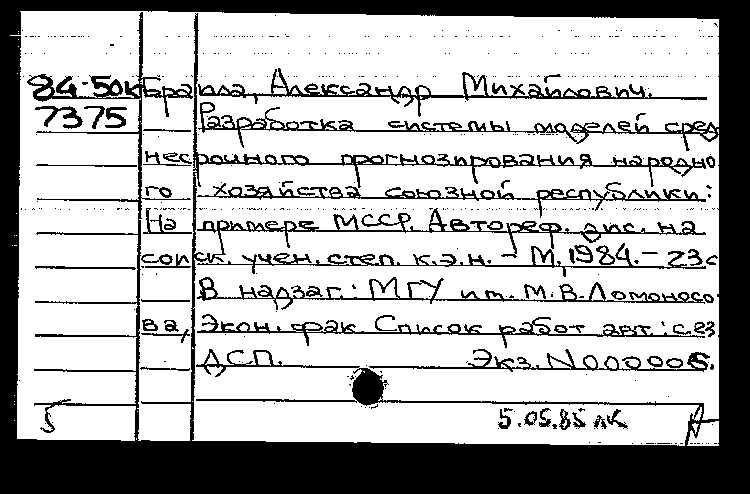 84-50к Браила, Александр Михайлович.
7375 Разработка системы моделей сред
несрочного прогнозирования народно
го хозяйства союзной республики:
На примере МССР. Автореф. дис. на
соиск. учен. степ. к.э.н. - М, 1984. - 23с
В надзаг.: МГУ им. М.В. Ломоносо
ва, Экон. фак. Список работ авт.: с. 23
ДСП. Экз. N000006.
5 5.05.85 лк